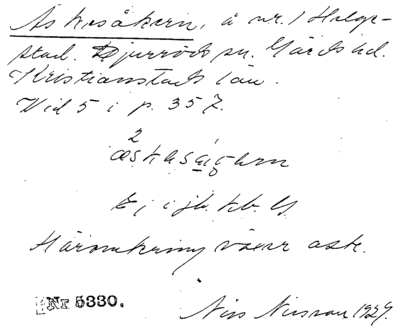 Askesåkern, å nr. 1 Helge-
stad. Djurröds sn. Gärds hd.
Kristianstads län.
Vid 5 i p. 357.
2
Ej i jb. kb. U
Häromkring växer ask.
Nr 5330.
Nils Nilsson 1927.